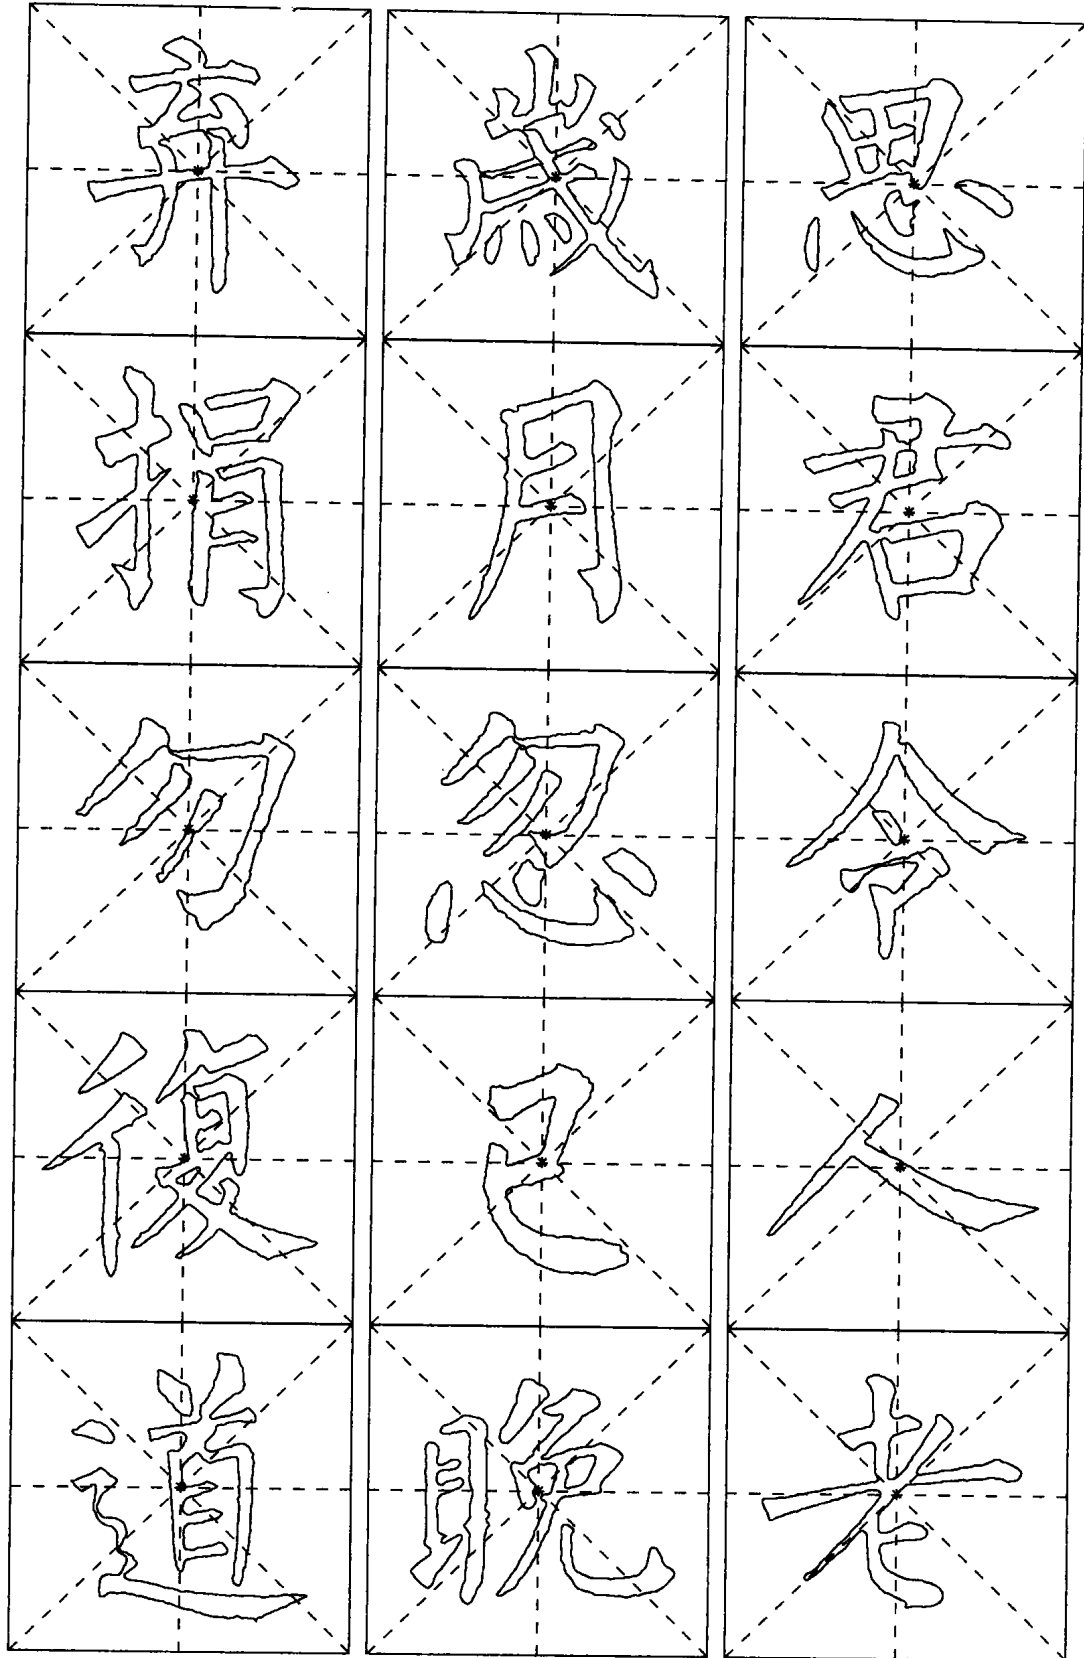 思君令人老
歲月忽已晚
棄捐勿復道